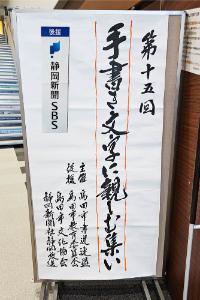 第十五回
手書き文字に親しむ集い
主催 島田市書道連盟
後援 島田市教育委員会
島田市文化協会
静岡新聞社静岡放送
後援
静岡新聞
SBS